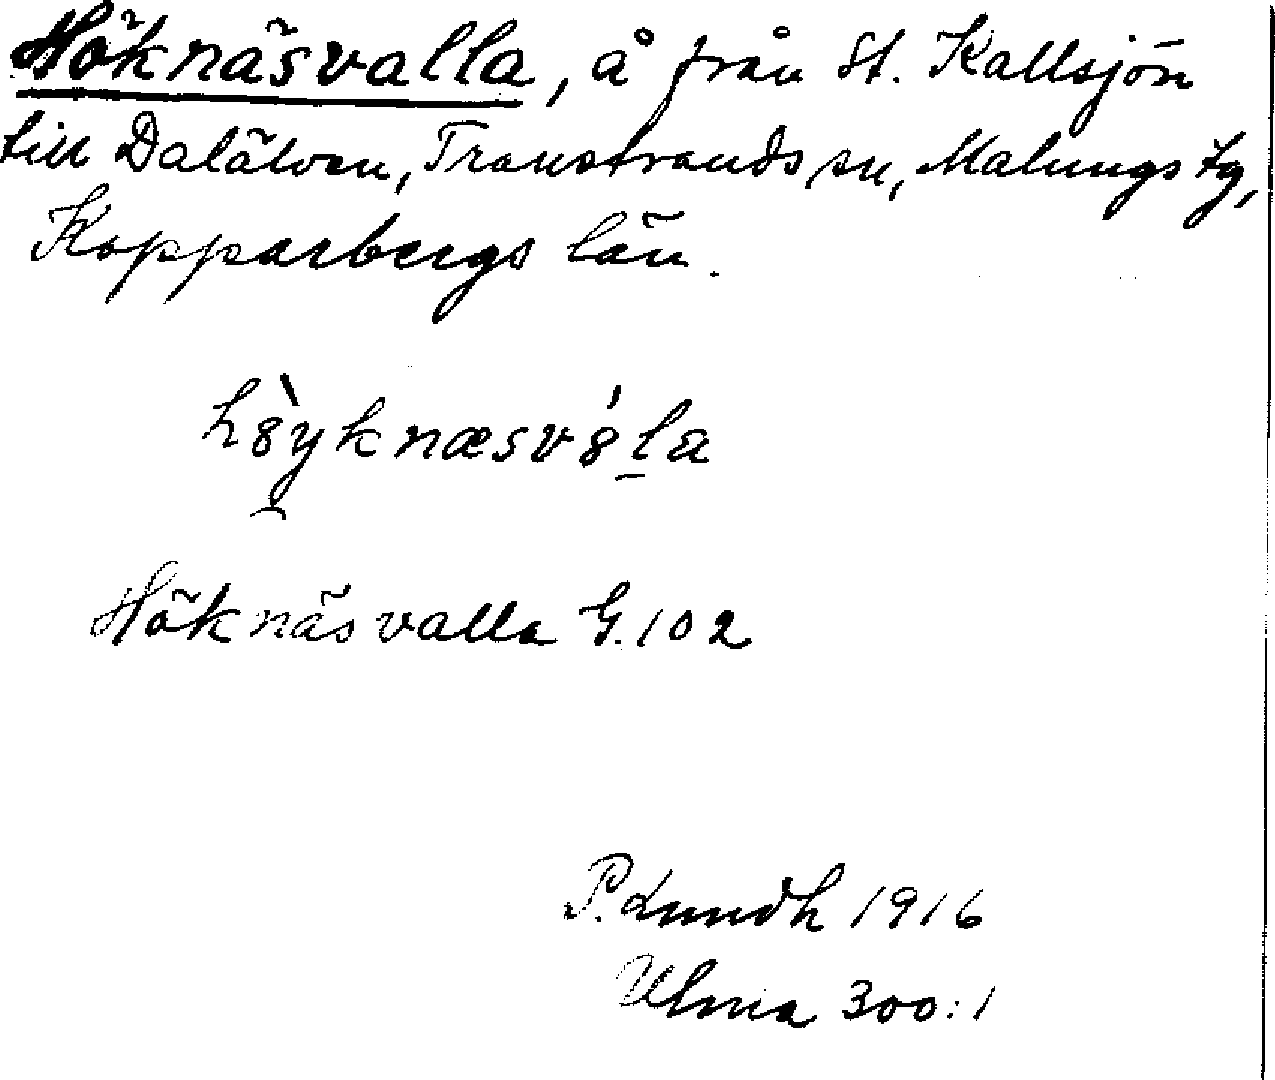 Höknäsvalla, å från St. Kallsjön
till Dalälven, Transtrands sn, Malungs tg,
Kopparbergs län.
Höknäsvalla G.102
P. Lundh 1916
Ulma 300:1